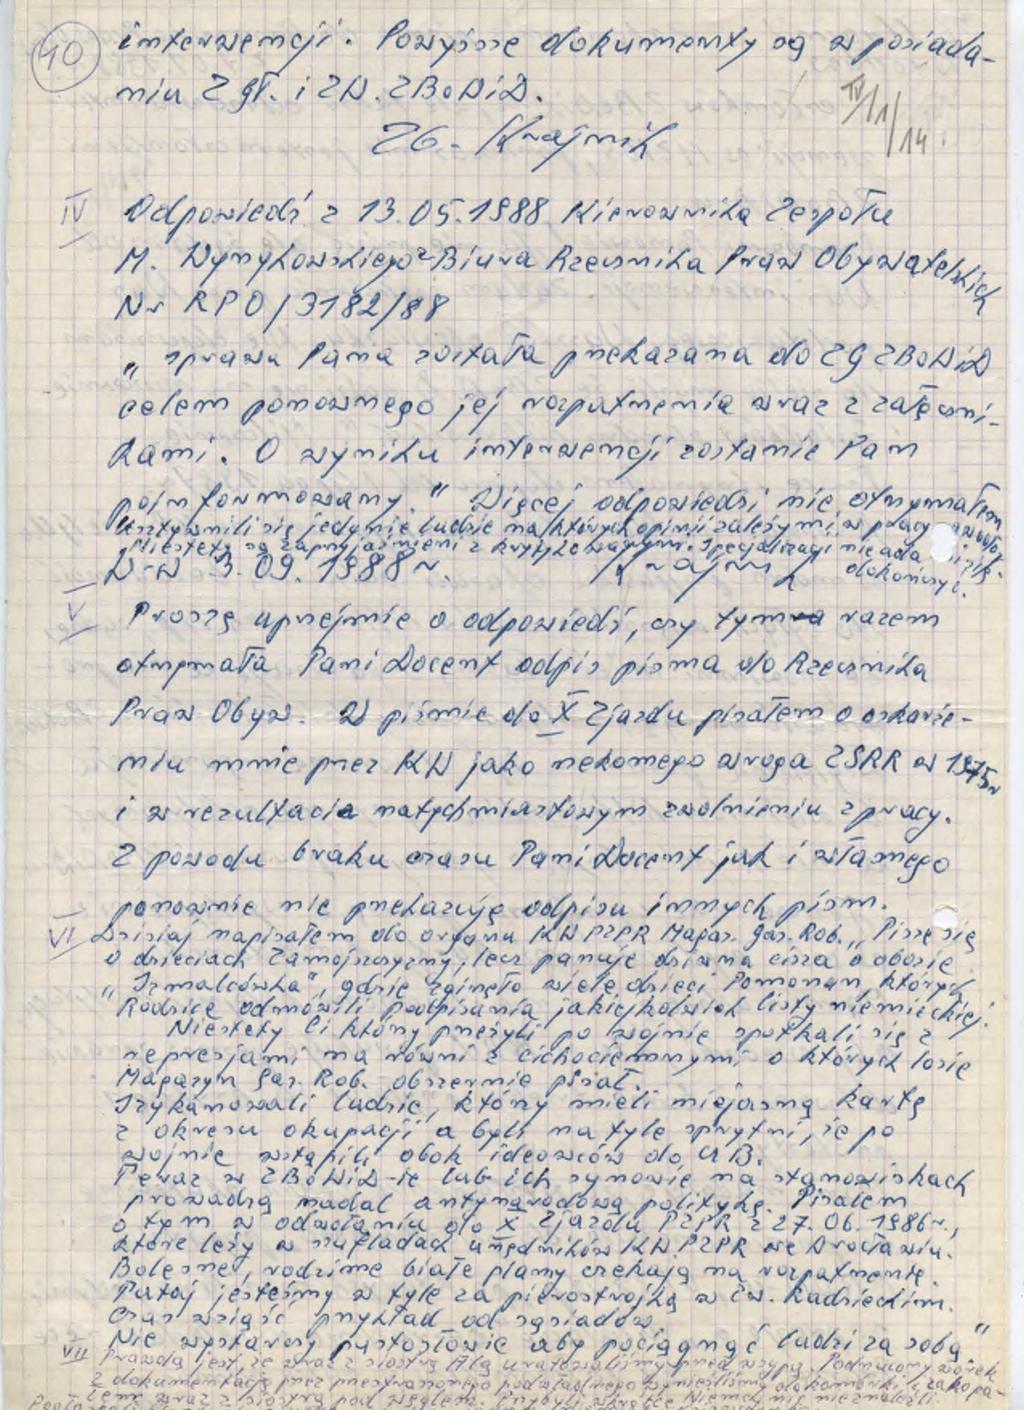 40
interwencji. Powyższe dokumenty są w posiada-
niu Z gł. i ZW. ZBoWiD.
IV/1/14
Zb. Krajnik
IV Odpowiedź z 13.05.1988 Kierownika Zespołu
M. Wynykowskiego z Biura Rzecznika Praw Obywatelskich
Nr RPO/3182/88
„sprawa Pana została przekazana do ZG ZBoWiD
celem ponownego jej rozpatrzenia wraz z załączni-
kami. O wyniku interwencji zostanie Pan
poinformowany." Więcej odpowiedzi nie otrzymałem
Usztywnili się jedynie ludzie na których opinii zależy mi w pracy
Niestety są zaprzyjaźnieni z krytykowanymi. Specjalizacji nie uda się
dokończyć.
W-w 3.09.1988 r. Krajnik
V Proszę uprzejmie o odpowiedź, czy tym razem
otrzymała Pani Docent odpis pisma do Rzecznika
Praw Obyw. W piśmie do X Zjazdu pisałem o oskarże-
niu mnie przez KW jako rzekomego wroga ZSRR w 1975 r
i w rezultacie natychmiastowym zwolnieniu z pracy.
Z powodu braku czasu Pani Docent jak i własnego
ponownie nie przekazuję odpisu innych pism.
VI Dzisiaj napisałem do organu KW PZPR Magaz. Gaz. Rob. „Pisze się
o dzieciach Zamojszczyzny, lecz panuje dziwna cisza o obozie
„Szmalcówka", gdzie zginęło wiele dzieci Pomorzan, których
Rodzice odmówili podpisania jakiejkolwiek listy niemieckiej.
Niestety Ci którzy przeżyli po wojnie spotkali się z
represjami na równi z cichociemnymi o których losie
Magazyn Gaz. Rob. obszernie pisał.
Szykanowali ludzie, którzy mieli niejasną kartę
z okresu okupacji a byli na tyle sprytni, że po
wojnie wstąpili obok ideowców do UB.
Teraz w ZBoWiD-ie lub ich synowie na stanowiskach
prowadzą nadal antynarodową politykę. Pisałem
o tym w odwołaniu do X Zjazdu PZPR z 27.06.1986 r.,
które leży w szufladach urzędników KW PZPR we Wrocławiu.
Bolesne, rodzime białe plamy czekają na rozpatrzenie.
Tutaj jesteśmy w tyle za pierestrojką w Zw. Radzieckim.
Czas wziąść przykład od sąsiadów.
Nie wystarczy pustosłowie aby pociągnąć ludzi za sobą"
VII Prawdą jest, że wraz z siostrą Alą uratowaliśmy przed wsypą. Podrzucony worek
z dokumentacją przez podwładnego wynieśliśmy do komórki i zakopa-
łem wraz z siostrą pod węglem. Przybyli wkrótce Niemcy nic nie znaleźli.